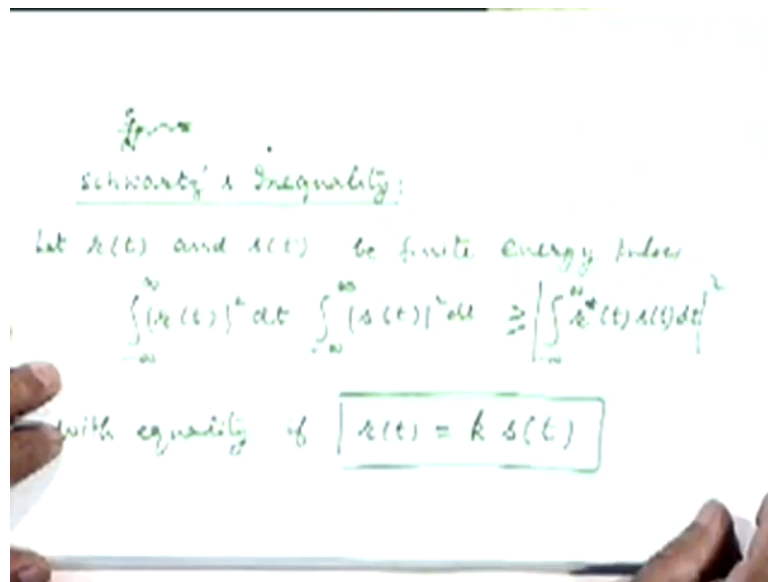 Schwartz's Inequality:
Let r(t) and s(t) be finite energy pulses
∫_{-∞}^{∞} |r(t)|² dt ∫_{-∞}^{∞} |s(t)|² dt ≥ |∫_{-∞}^{∞} r*(t) s(t) dt|²
with equality if r(t) = k s(t)